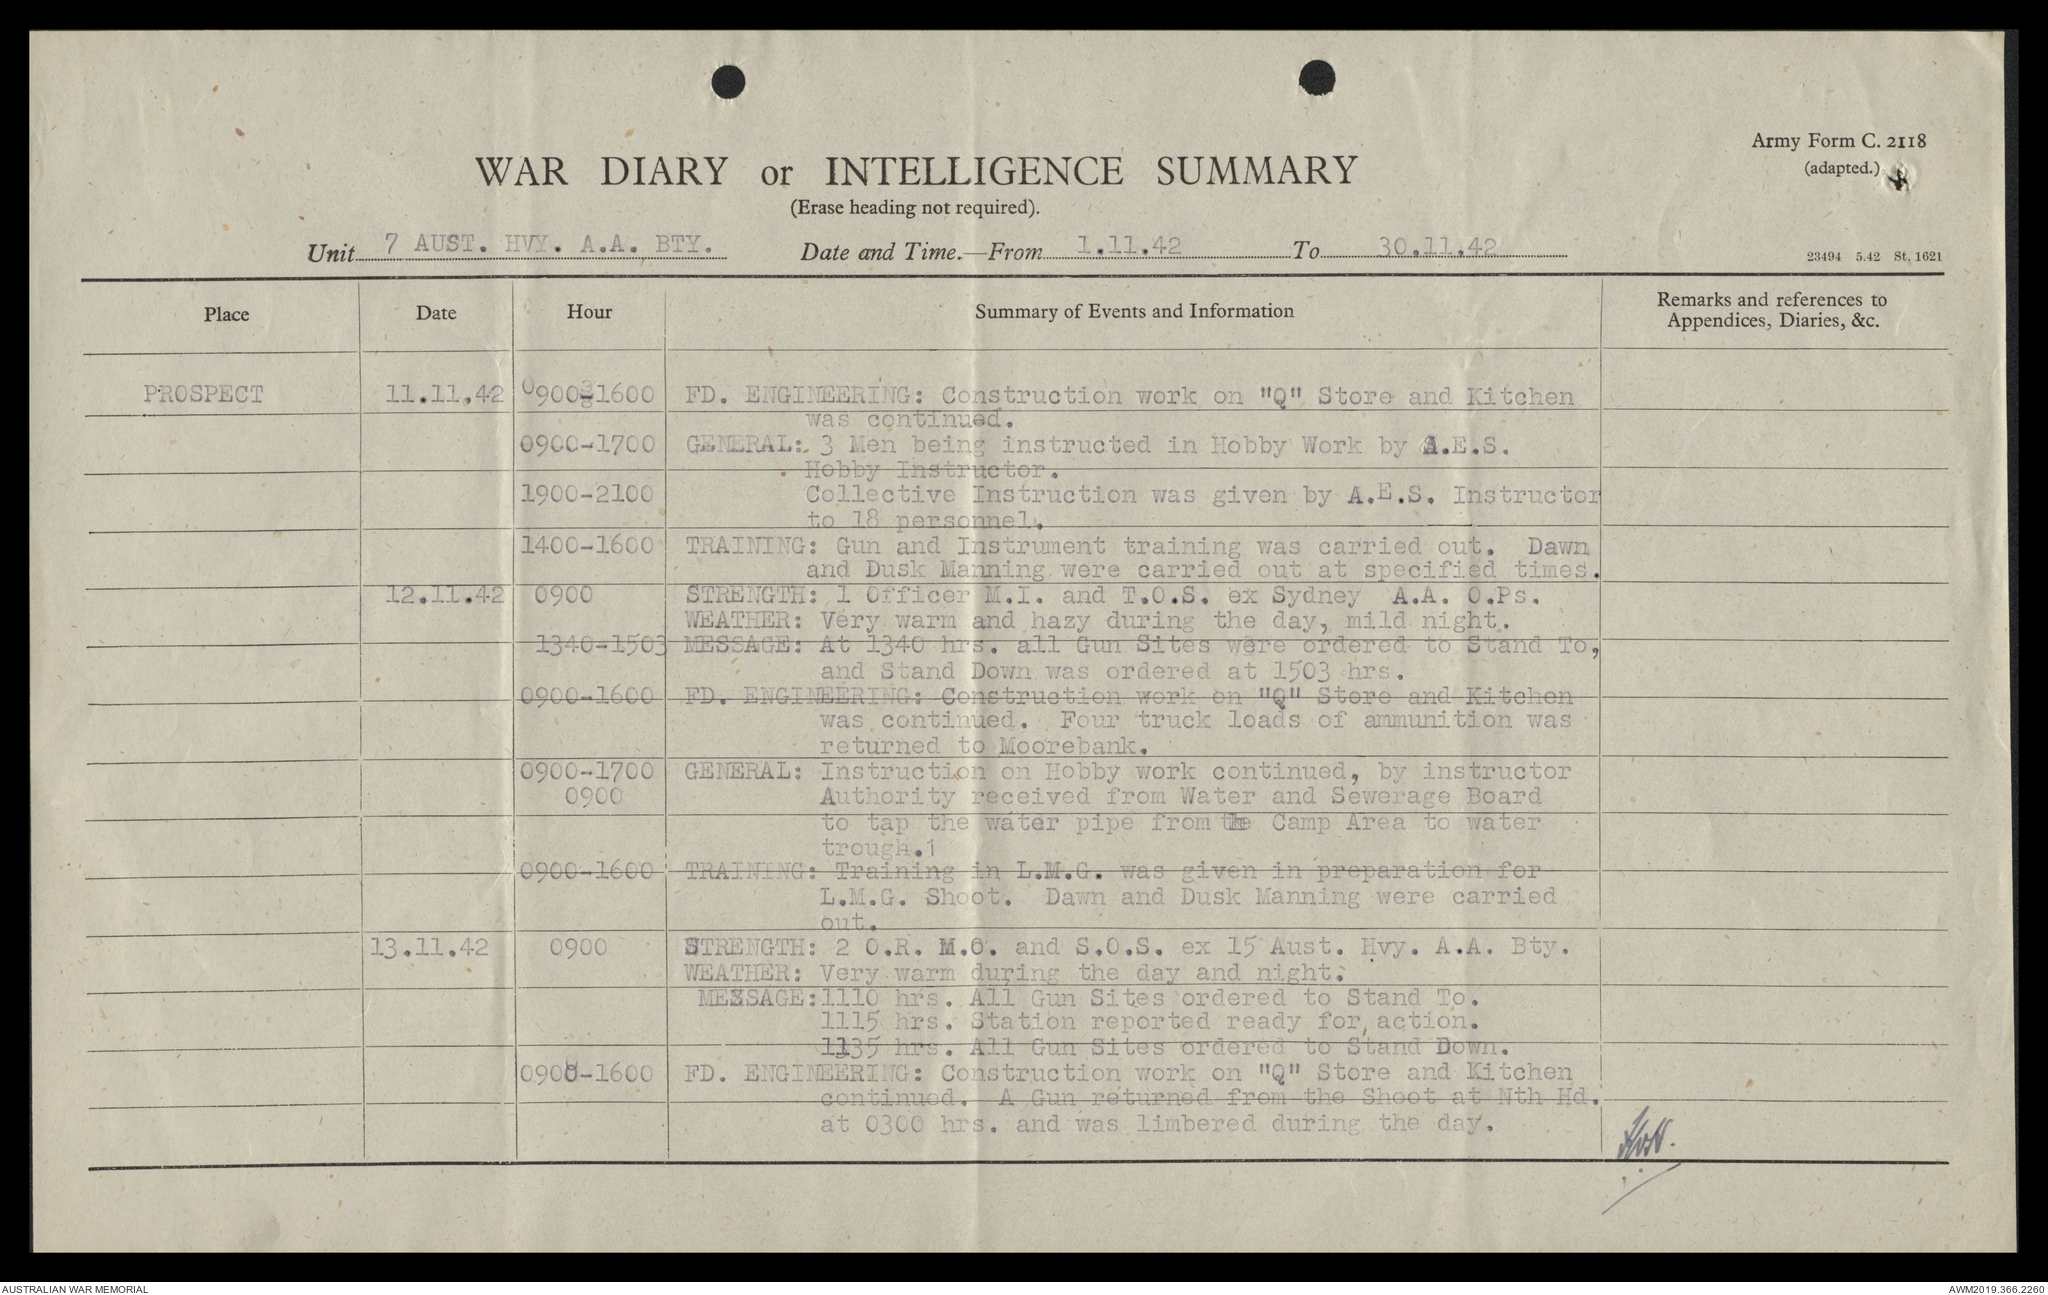 Army Form C. 2118
(adapted.)
WAR DIARY or INTELLIGENCE SUMMARY
(Erase heading not required).
Unit 7 AUST. HVY. A.A. BTY. Date and Time.—From 1.11.42 To 30.11.42
23494 5.42 St. 1621
Place Date Hour Summary of Events and Information Remarks and references to
Appendices, Diaries, &c.
PROSPECT 11.11.42 0900-1600 FD. ENGINEERING: Construction work on "Q" Store and Kitchen
was continued.
0900-1700 GENERAL: 3 Men being instructed in Hobby Work by A.E.S.
Hobby Instructor.
1900-2100 Collective Instruction was given by A.E.S. Instructor
to 18 personnel.
1400-1600 TRAINING: Gun and Instrument training was carried out. Dawn
and Dusk Manning were carried out at specified times.
12.11.42 0900 STRENGTH: 1 Officer M.I. and T.O.S. ex Sydney A.A. O.Ps.
WEATHER: Very warm and hazy during the day, mild night.
1340-1503 MESSAGE: At 1340 hrs. all Gun Sites were ordered to Stand To,
and Stand Down was ordered at 1503 hrs.
0900-1600 FD. ENGINEERING: Construction work on "Q" Store and Kitchen
was continued. Four truck loads of ammunition was
returned to Moorebank.
0900-1700 GENERAL: Instruction on Hobby work continued, by instructor
0900 Authority received from Water and Sewerage Board
to tap the water pipe from the Camp Area to water
trough.1
0900-1600 TRAINING: Training in L.M.G. was given in preparation for
L.M.G. Shoot. Dawn and Dusk Manning were carried
out.
13.11.42 0900 STRENGTH: 2 O.R. M.O. and S.O.S. ex 15 Aust. Hvy. A.A. Bty.
WEATHER: Very warm during the day and night.
MESSAGE: 1110 hrs. All Gun Sites ordered to Stand To.
1115 hrs. Station reported ready for action.
1135 hrs. All Gun Sites ordered to Stand Down.
0900-1600 FD. ENGINEERING: Construction work on "Q" Store and Kitchen
continued. A Gun returned from the Shoot at Nth Hd.
at 0300 hrs. and was limbered during the day.
AUSTRALIAN WAR MEMORIAL
AWM2019.366.2260